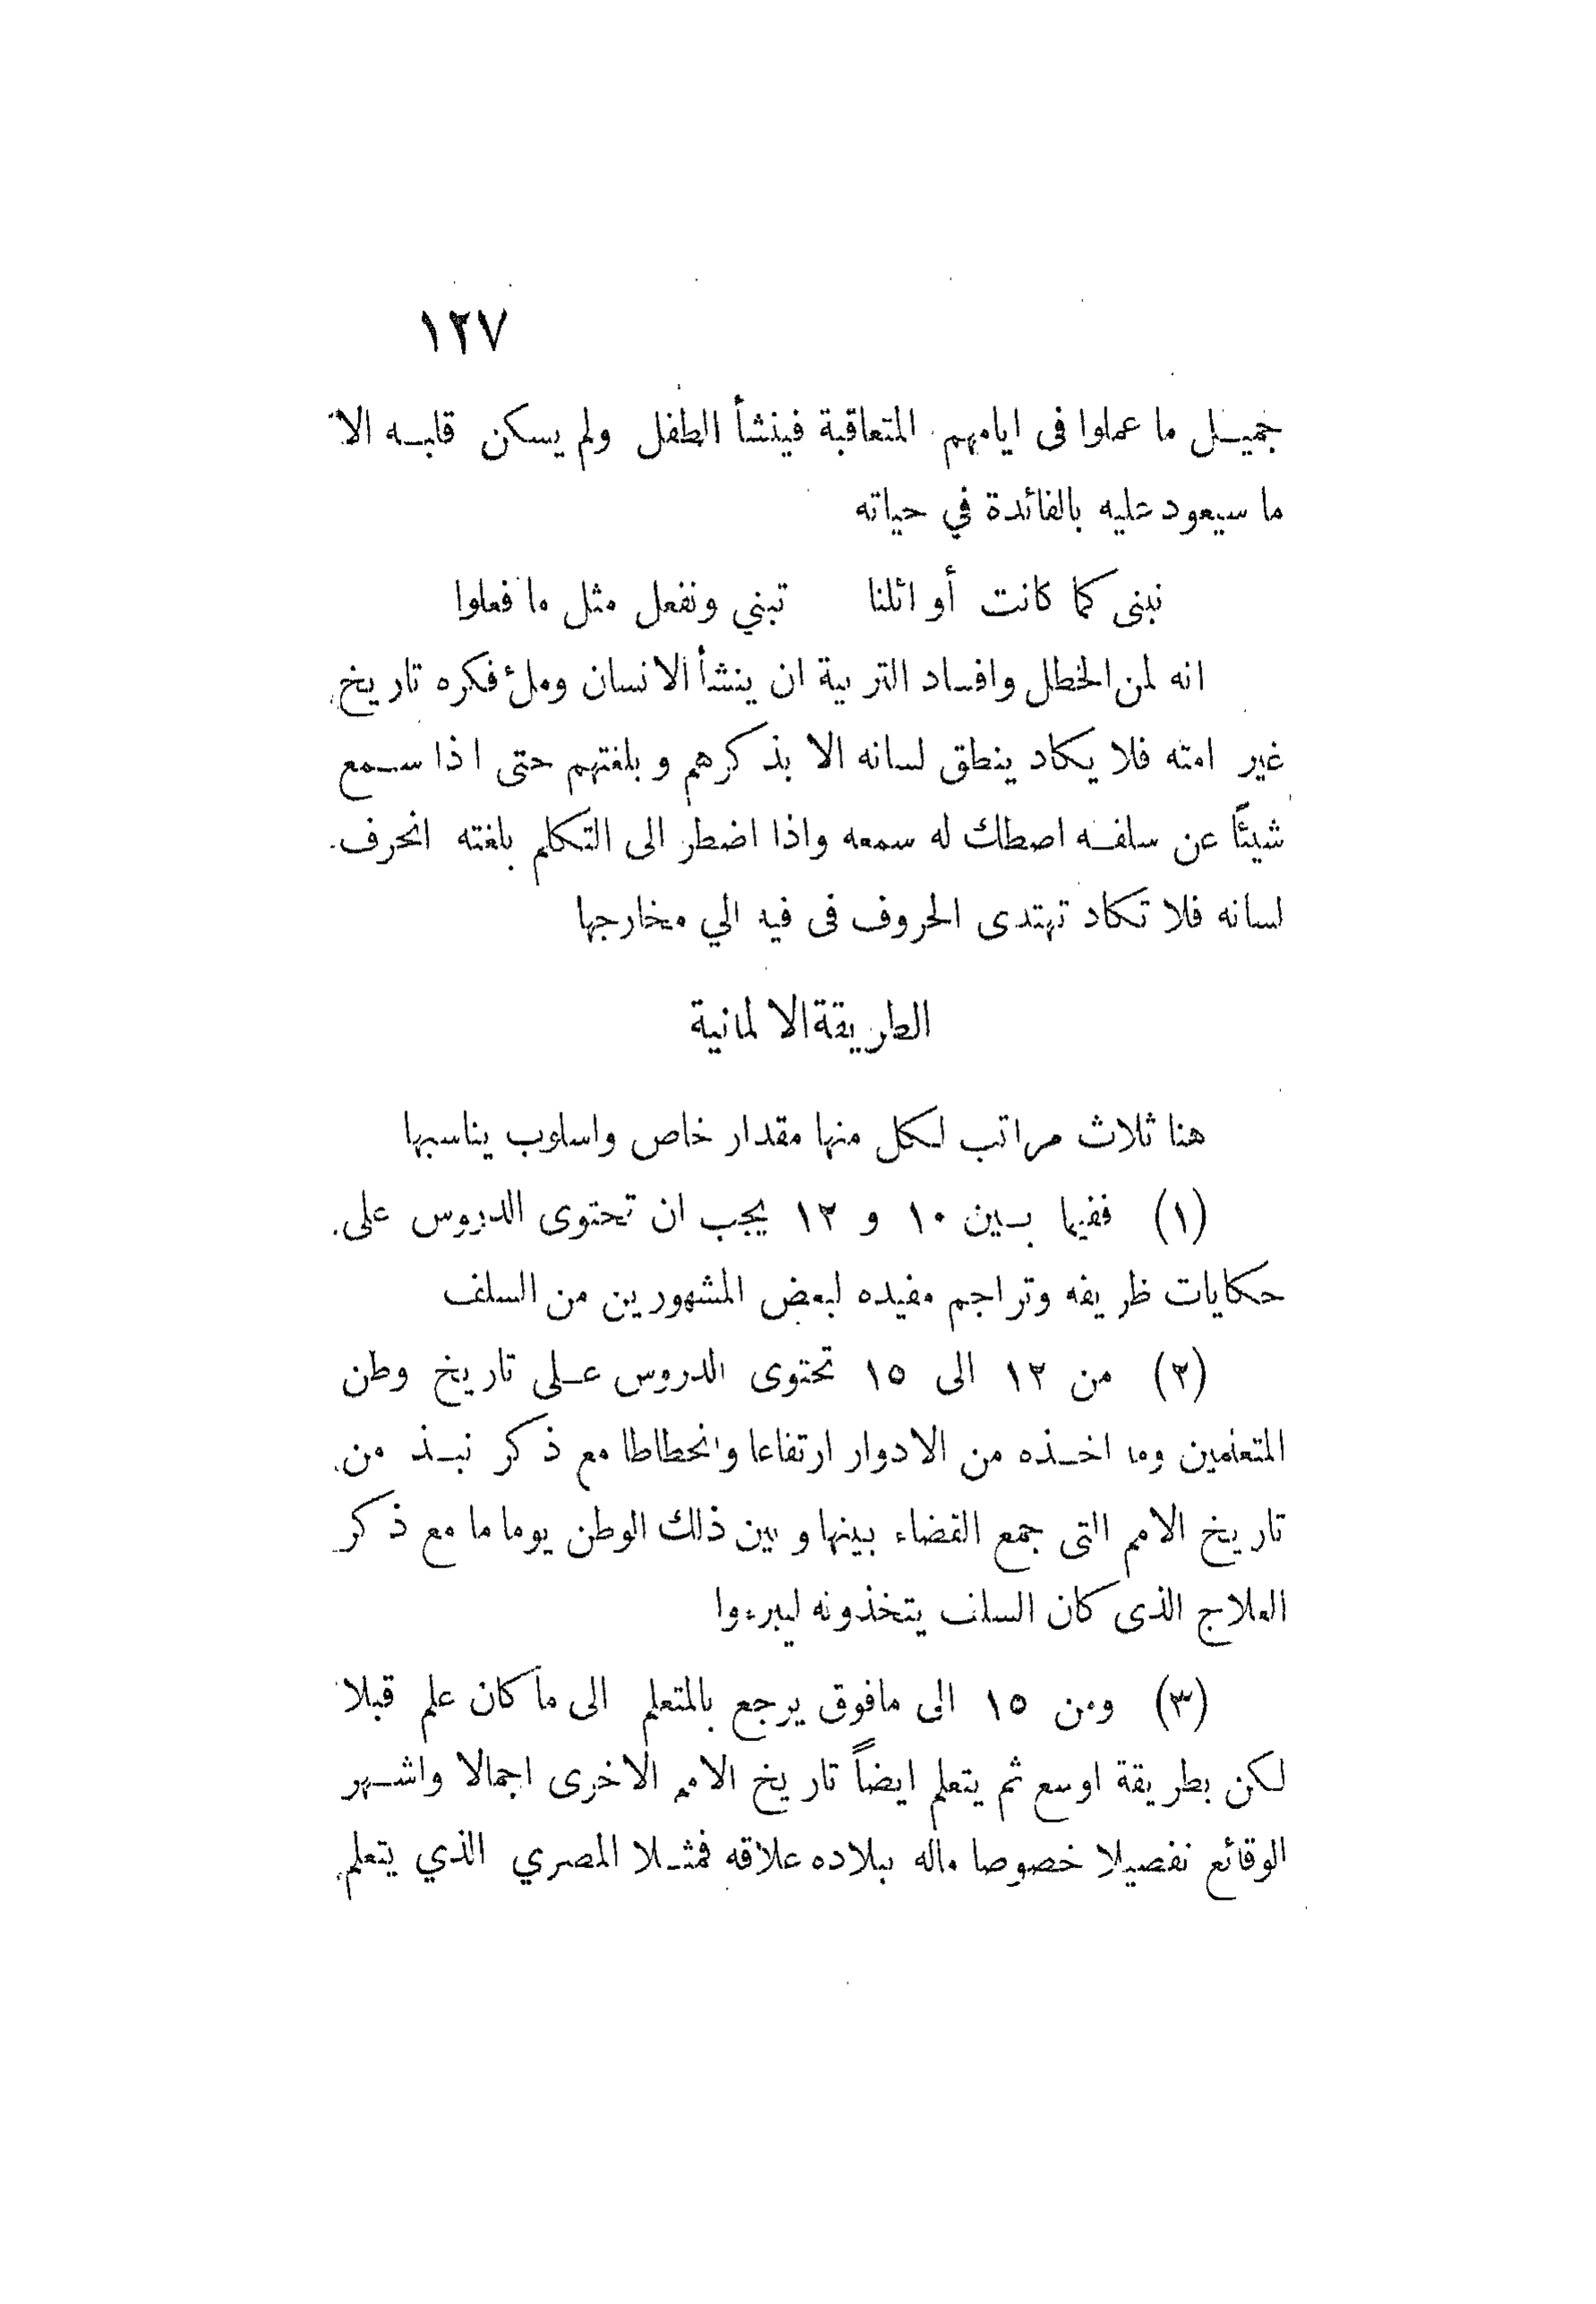 ١٢٧
جميل ما عملوا فى ايامهم المتعاقبة فينشأ الطفل ولم يسكن قلبه الا
ما سيعود عليه بالفائدة في حياته
نبنى كما كانت أوائلنا تبني ونفعل مثل ما فعلوا
انه لمن الخطل وافساد التربية ان ينشأ الانسان وملئ فكره تاريخ
غير امته فلا يكاد ينطق لسانه الا بذكرهم وبلغتهم حتى اذا سمع
شيئًا عن سلفه اصطك له سمعه واذا اضطر الى التكلم بلغته انحرف
لسانه فلا تكاد تهتدى الحروف فى فيه الي مخارجها
الطريقة الالمانية
هنا ثلاث مراتب لكل منها مقدار خاص واسلوب يناسبها
(١) ففيما بين ١٠ و ١٢ يجب ان تحتوى الدروس على
حكايات ظريفه وتراجم مفيده لبعض المشهورين من السلف
(٢) من ١٢ الى ١٥ تحتوى الدروس على تاريخ وطن
المتعلمين وما اخذه من الادوار ارتفاعا وانحطاطا مع ذكر نبذ من
تاريخ الامم التى جمع القضاء بينها وبين ذلك الوطن يوما ما مع ذكر
العلاج الذى كان السلف يتخذونه ليبرءوا
(٣) ومن ١٥ الى مافوق يرجع بالمتعلم الى ما كان علم قبلا
لكن بطريقة اوسع ثم يتعلم ايضاً تاريخ الامم الاخرى اجمالا واشهر
الوقائع تفصيلا خصوصا ماله ببلاده علاقه فمثلا المصري الذي يتعلم